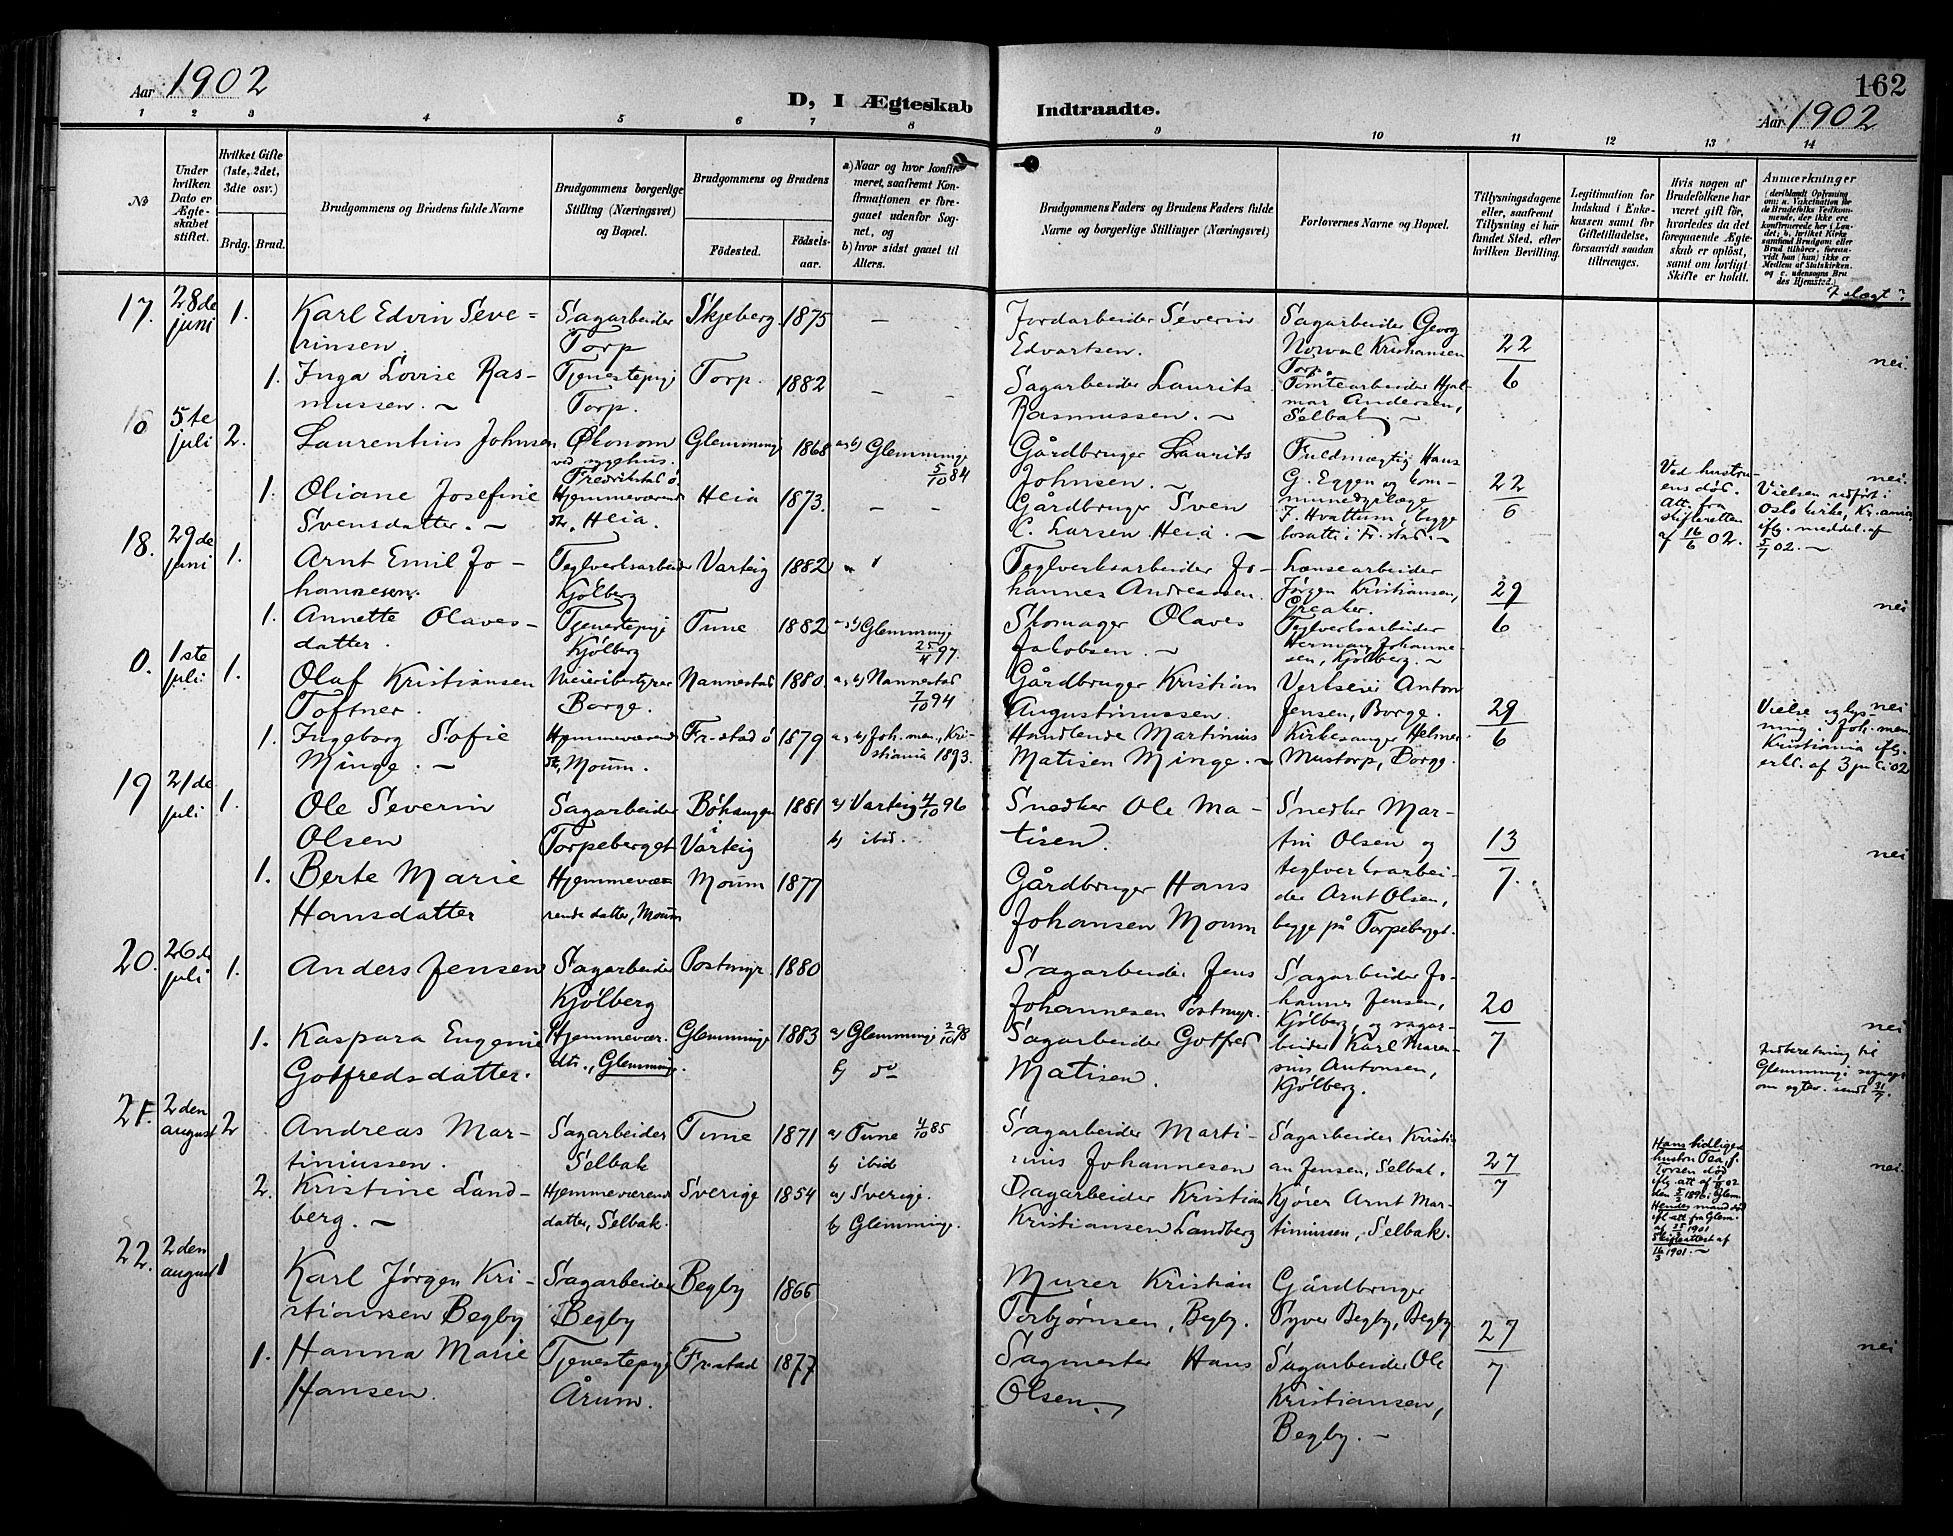 Aar 1902
D, I Ægteskab
Indtraadte.
162
Aar 1902
1 2 3 4 5 6 7 8 9 10 11 12 13 14
No
Under hvilken Dato er Ægteskabet stiftet.
Hvilket Gifte (1ste, 2det, 3die osv.)
Brdg. Brud.
Brudgommens og Brudens fulde Navne
Brudgommens borgerlige Stilling (Næringsvei) og Bopæl.
Brudgommens og Brudens
Fødested.
Fødselsaar.
a) Naar og hvor konfirmeret, saafremt Konfirmationen er foregaaet udenfor Sognet, og
b) hvor sidst gaaet til Alters.
Brudgommens Faders og Brudens Faders fulde Navne og borgerlige Stillinger (Næringsvei)
Forlovernes Navne og Bopæl.
Tillysningsdagene eller, saafremt Tillysning ei har fundet Sted, efter hvilken Bevilling.
Legitimation for Indskud i Enkekassen samt for Giftetilladelse, forsaavidt saadan tiltrænges.
Hvis nogen af Brudefolkene har været gift før, hvorledes da det foregaaende Ægteskab er opløst, samt om lovligt Skifte er holdt.
Anmærkninger
I slægt?
17. 28de juni 1.
Karl Edvin Severinsen
Sagarbeider Torp
Skjeberg 1875 –
Jordarbeider Severin Edvartsen.
Sagarbeider Georg Norval Kristiansen Torp.
22/6
nei.
1. Inga Lovise Rasmussen. ~
Tjenestepige Torp.
Torp. 1882 – –
Sagarbeider Laurits Rasmussen. ~
Tomtearbeider Hjalmar Andersen, Selbak. ~
0 5te juli 2.
Laurentius Johnsen
Økonom ved sygehus. Fredrikstad
Glemminge 1868 a, b) Glemminge 5/10 84
Gårdbruger Laurits Johnsen. ~
Fuldmægtig Hans G. Eggen og kommunedyrlæge F. Hvattum, begge bosatte i Fr.stad. ~
22/6
Ved hustruens død. Att. fra skifteretten af 16/6 02.
nei.
Vielsen udført i Oslo kirke, Kr.ania iflg. meddel. af 5/7 02. ~
1. Oliane Josefine Svensdatter. ~
Hjemmeværende dtr, Heia.
Heia 1873. – –
Gårdbruger Sven C. Larsen Heia. ~
18. 29de juni 1.
Arnt Emil Johannesen.
Teglverksarbeider Kjölberg
Varteig 1882
Teglverksarbeider Johannes Andreassen.
Lænsearbeider Jörgen Kristiansen, Greaker.
29/6
nei
1. Annette Olavesdatter.
Tjenestepige Kjölberg
Tune 1882 a, b) Glemminge 25/4 97.
Skomager Olaves Jakobsen. ~
Teglverksarbeider Herman Johannesen, Kjölberg. ~
0. 1ste juli. 1.
Olaf Kristiansen Toftner.
Meieribestyrer Borge.
Nannestad 1880. a, b) Nannestad 7/10 94
Gårdbruger Kristian Augustinussen.
Verkseier Anton Jensen, Borge.
29/6
nei
1. Ingeborg Sofie Minge. ~
Hjemmeværende dtr, Moum.
Fr.stad 1879 a, b) Joh. men., Kristiania 1893.
Handlende Martinius Matisen Minge. ~
Kirkesanger Helmer Mustorp, Borge.
Vielse og lysning i Joh. men. Kristiania iflg. erkl. af 3 juli 02
19 21de juli 1.
Ole Severin Olsen
Sagarbeider Torpeberget
Böhaugen i Varteig 1881 a) Varteig 4/10 96
b) ibid.
Snedker Ole Matisen.
Snedker Martin Olsen og teglverksarbeider Arnt Olsen, begge på Torpeberget.
13/7.
nei
1. Berte Marie Hansdatter
Hjemmeværende datter, Moum
Moum 1877
Gårdbruger Hans Johansen Moum
20. 26de juli 1.
Anders Jensen
Sagarbeider Kjölberg
Postmyr. 1880
Sagarbeider Jens Johannesen Postmyr.
Sagarbeider Johannes Jensen, Kjölberg, og sagarbeider Karl Marensius Antonsen, Kjölberg.
20/7
nei
1. Kaspara Eugenie Gotfredsdatter.
Hjemmevær. dtr., Glemminge.
Glemminge 1883 a) Glemminge 2/10 98
b) do
Sagarbeider Gotfred Matisen.
Indberetning til Glemminge sognepr. om egtev. sendt 31/7.
21. 2den august 2
Andreas Martiniussen.
Sagarbeider Selbak
Tune 1871 a) Tune 4/10 85
b) ibid
Sagarbeider Martinius Johannesen
Sagarbeider Kristian Jensen, Selbak.
27/7
nei
2. Kristine Landberg. ~
Hjemmeværende datter, Selbak.
Sverige 1854 a) Sverige.
b) Glemminge.
Dagarbeider Kristian Kristiansen Landberg
Kjörer Arnt Martiniussen, Selbak.
22. 2den august 1
Karl Jørgen Kristiansen Begby
Sagarbeider Begby
Begby 1866
Murer Kristian Torbjørnsen, Begby.
Gårdbruger Syver Begby, Begby
27/7
nei
1. Hanna Marie Hansen.
Tjenestepige Årum.
Fr.stad 1877
Sagmester Hans Olsen.
Sagarbeider Ole Kristiansen, Begby. –